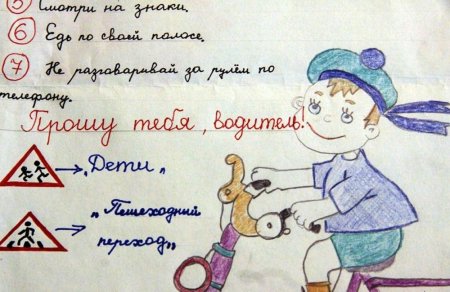 5 Смотри на знаки.
6 Едь по своей полосе.
7 Не разговаривай за рулём по
телефону.
Прошу тебя, водитель!
„Дети„
„Пешеходный
переход„